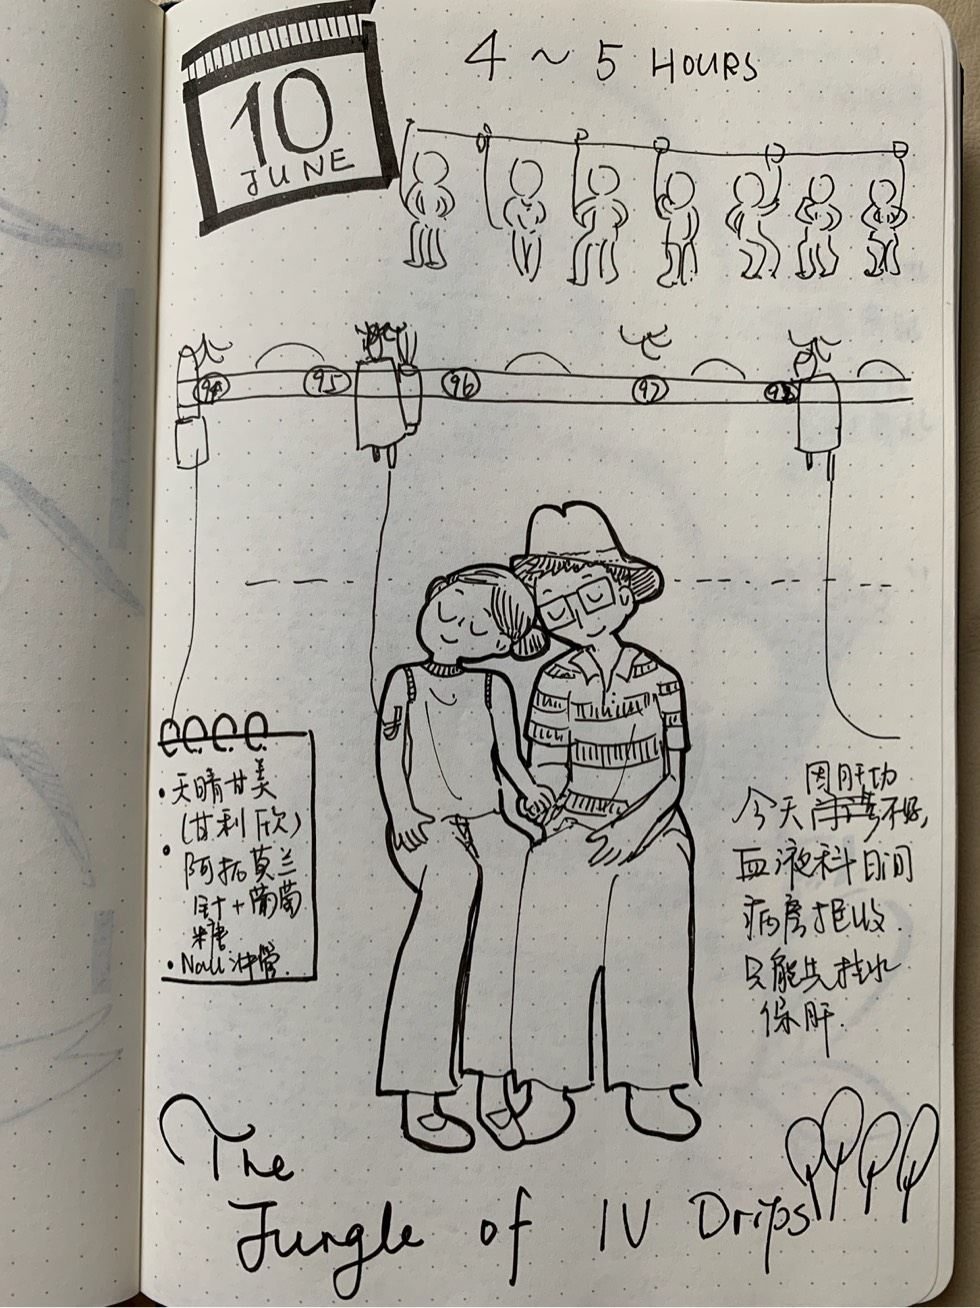 10
JUNE
4 ~ 5 HOURS
94 95 96 97 98
• 天晴甘美
(甘利欣)
• 阿拓莫兰
针+葡萄
糖
• Nacl 冲管
因肝功
今天不好,
血液科日间
病房拒收.
只能先挂水
保肝.
The
Jungle of IV Drips